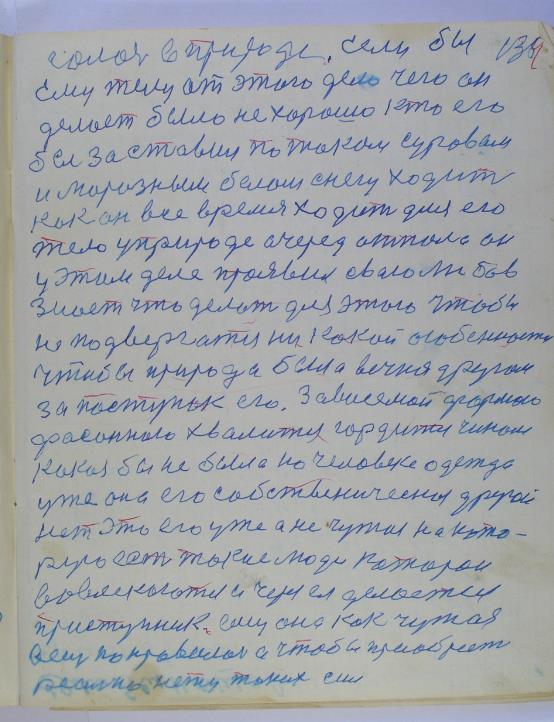 салая в природе. если бы 134
ему телу от этого дело чего он
делает было не хорошо кто его
бы заставил по таком суровам
и морозным белом снегу ходит
как он все время ходит для его
тело у природе очередь он
у этом деле проявил сваю любов
знает что делат для этого чтобы
не подвергатя ни какой особенности
чтобы природа была вечня другом
за поступок его. Зависемой формою
фасонного хвалится гордится чином
какая бы не была на человеке одежда
уже она его собственическая другой
нет это его уже а не чужая на кото-
рую ест такие люди
и через ея делается
приступник. ему она как чужая
ему понравалас а чтобы приобрест
нету таких сил